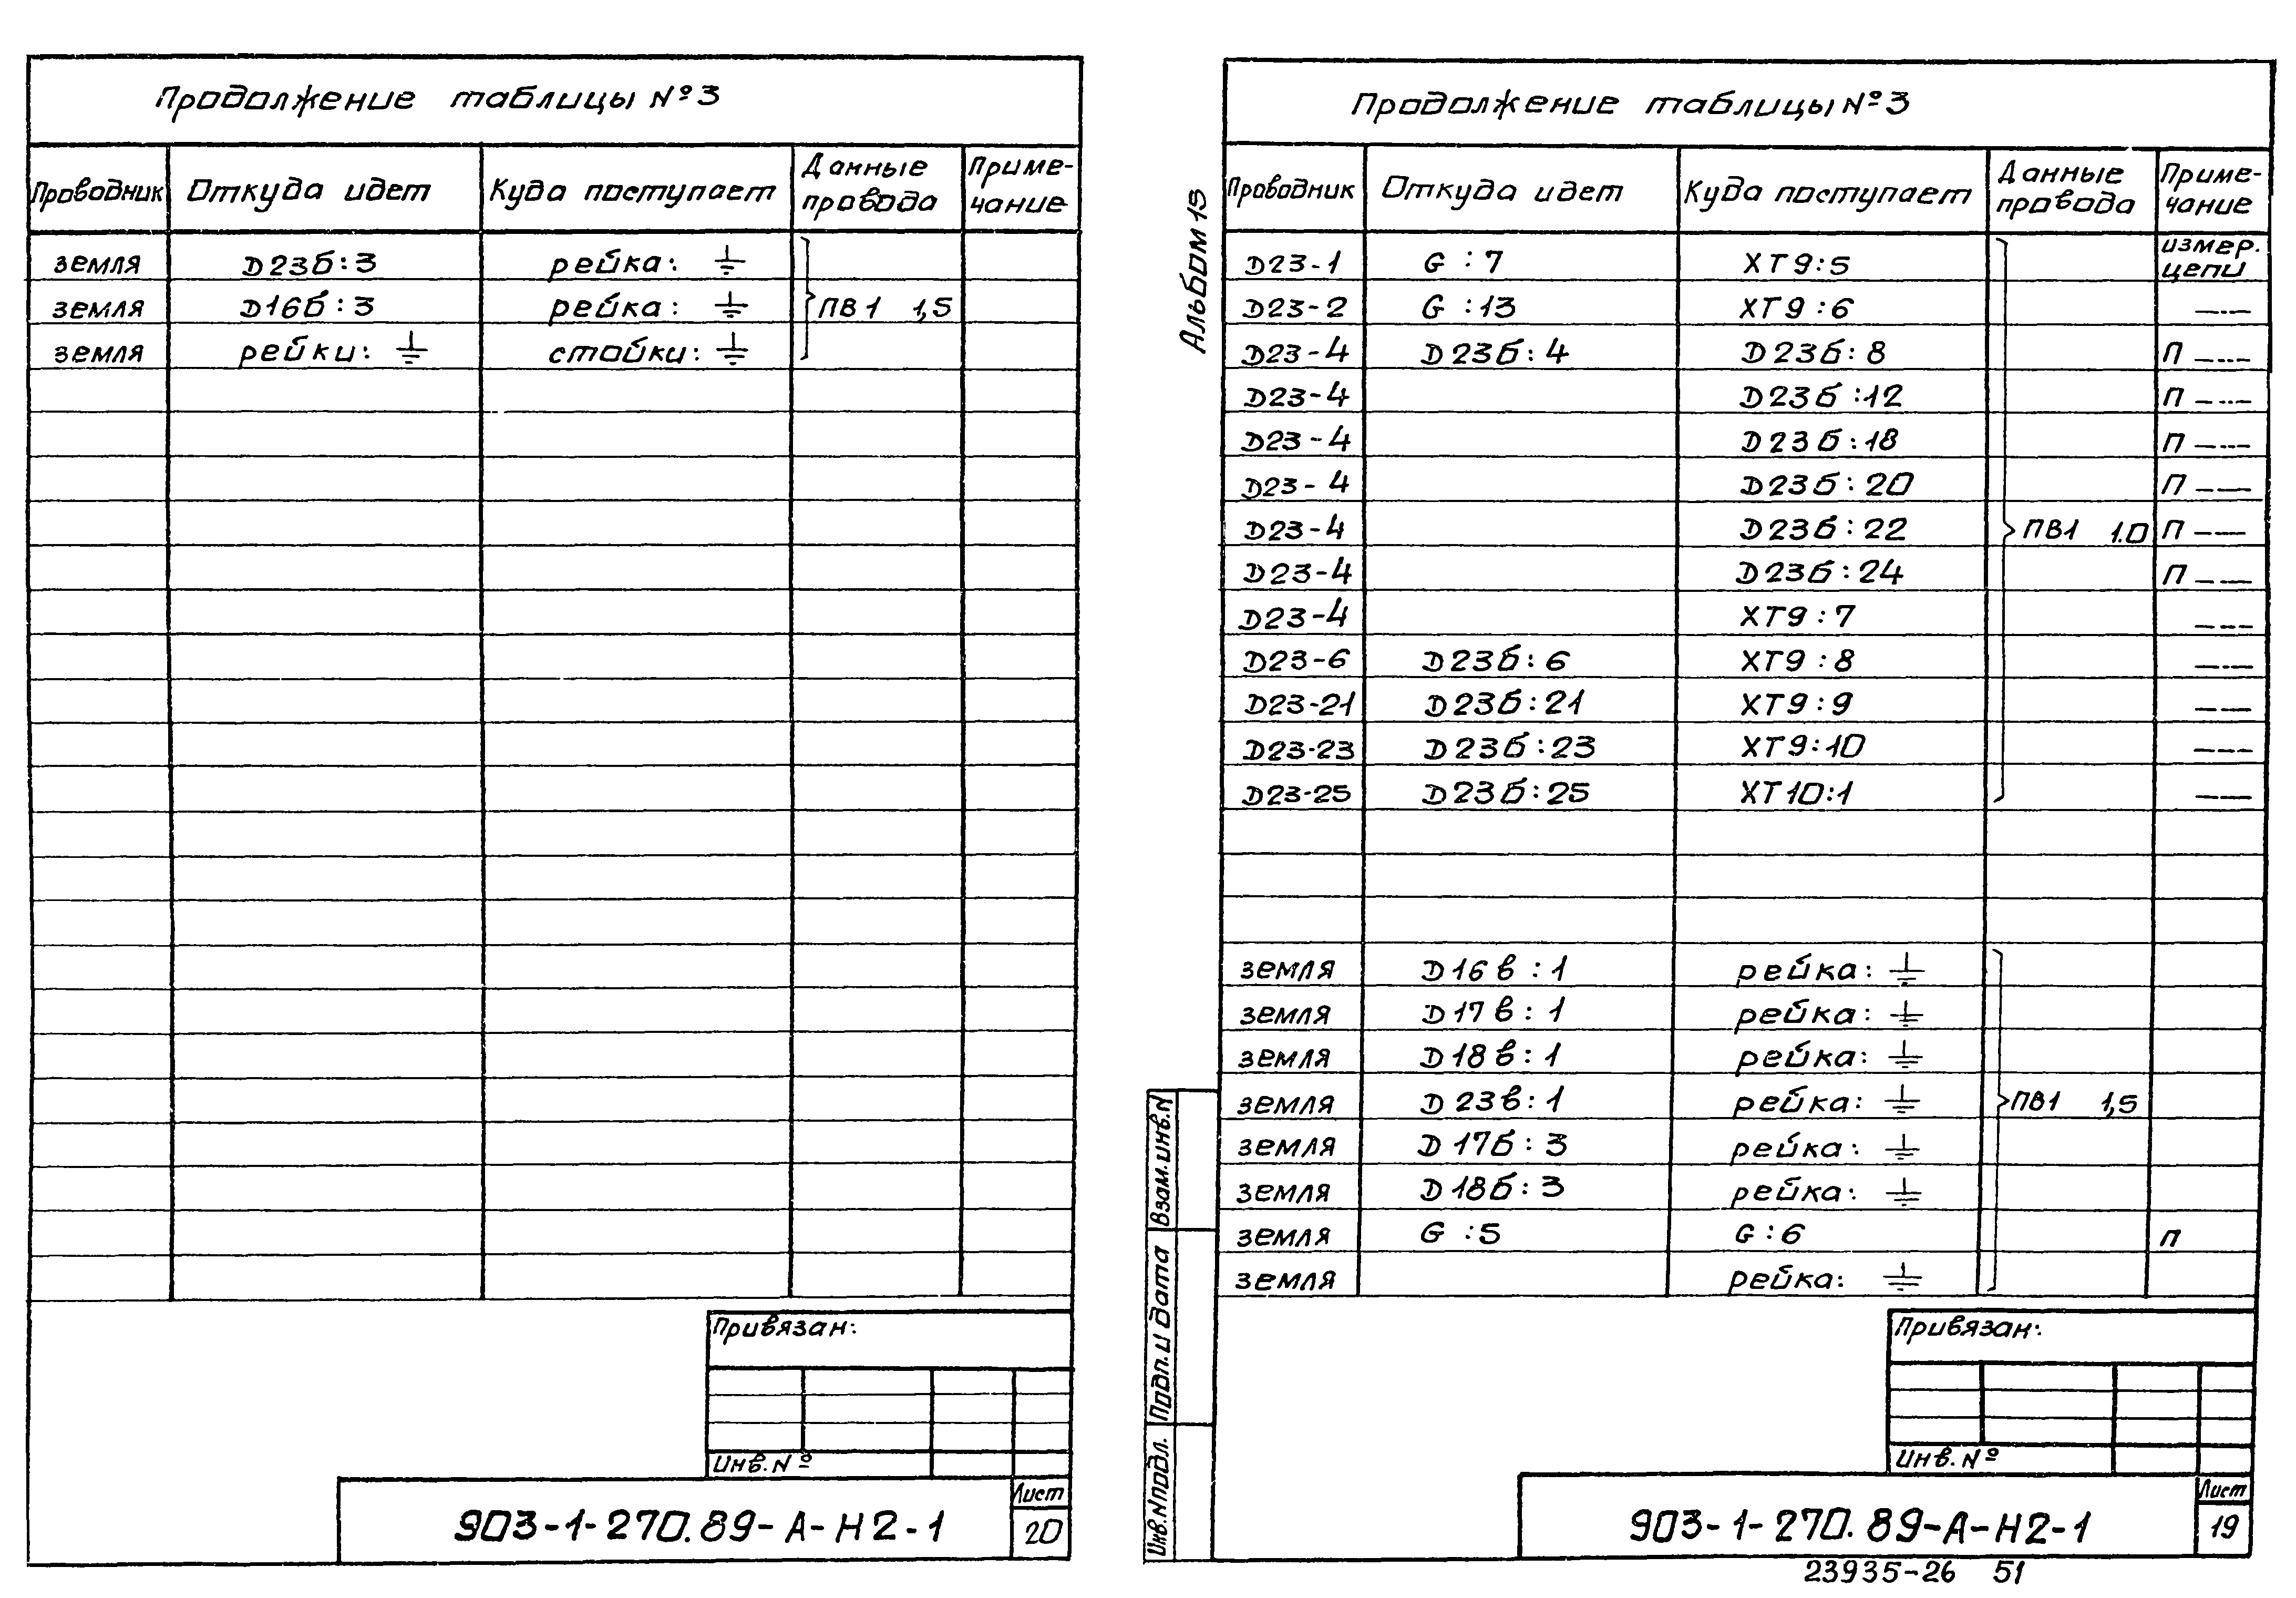 Продолжение таблицы №3
Проводник Откуда идет Куда поступает Данные провода Приме-чание
земля Д23б:3 рейка: ⏚
земля Д16б:3 рейка: ⏚ ПВ1 1,5
земля рейки: ⏚ стойки: ⏚
Привязан:
Инв.№
903-1-270.89-А-Н2-1
Лист
20
Альбом 13
Продолжение таблицы №3
Проводник Откуда идет Куда поступает Данные провода Приме-чание
Д23-1 G :7 ХТ9:5 измер. цепи
Д23-2 G :13 ХТ9:6 —"—
Д23-4 Д23б:4 Д23б:8 П —"—
Д23-4 Д23б:12 П —"—
Д23-4 Д23б:18 П —"—
Д23-4 Д23б:20 П —"—
Д23-4 Д23б:22 ПВ1 1.0 П —"—
Д23-4 Д23б:24 П —"—
Д23-4 ХТ9:7 —"—
Д23-6 Д23б:6 ХТ9:8 —"—
Д23-21 Д23б:21 ХТ9:9 —"—
Д23-23 Д23б:23 ХТ9:10 —"—
Д23-25 Д23б:25 ХТ10:1 —"—
земля Д16в:1 рейка: ⏚
земля Д17в:1 рейка: ⏚
земля Д18в:1 рейка: ⏚
земля Д23в:1 рейка: ⏚ ПВ1 1,5
земля Д17б:3 рейка: ⏚
земля Д18б:3 рейка: ⏚
земля G :5 G:6 П
земля рейка: ⏚
Взам.инв.N
Подп.и дата
Инв.Nподл.
Привязан:
Инв.№
903-1-270.89-А-Н2-1
Лист
19
23935-26 51